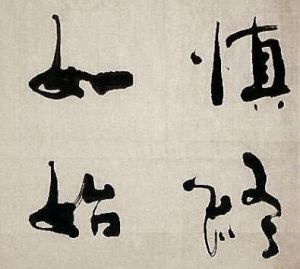 慎終
如始